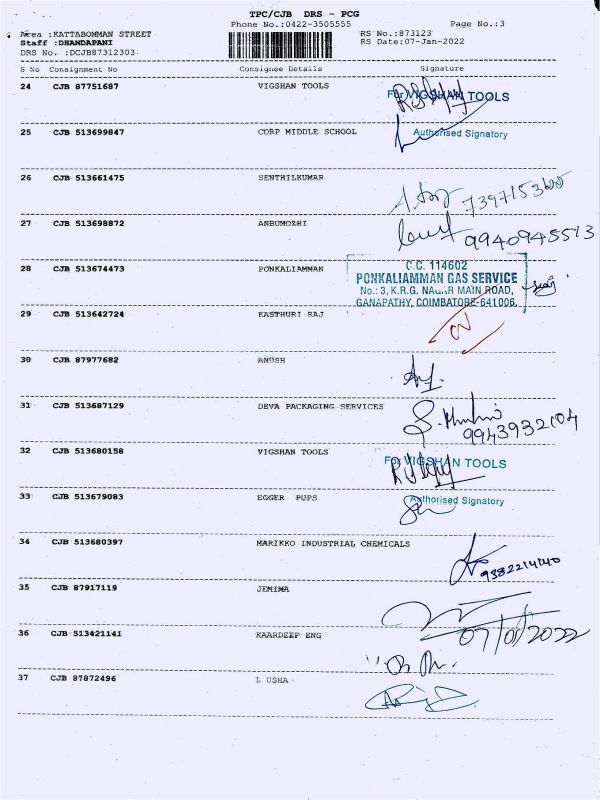 TPC/CJB DRS - PCG
Phone No.:0422-3505555 Page No.:3
Area :KATTABOMMAN STREET RS No.:873123
Staff :DHANDAPANI RS Date:07-Jan-2022
DRS No. :DCJB87312303
S No Consignment No Consignee Details Signature
24 CJB 87751687 VIGSHAN TOOLS For VIGSHAN TOOLS
25 CJB 513699847 CORP MIDDLE SCHOOL Authorised Signatory
26 CJB 513661475 SENTHILKUMAR
27 CJB 513698872 ANBUMOZHI 9940945513
28 CJB 513674473 PONKALIAMMAN
C.C. 114602
PONKALIAMMAN GAS SERVICE
No.: 3, K.R.G. NAGAR MAIN ROAD,
GANAPATHY, COIMBATORE-641006.
29 CJB 513642724 KASTHURI RAJ
30 CJB 87977682 ANUSH
31 CJB 513687129 DEVA PACKAGING SERVICES
32 CJB 513680158 VIGSHAN TOOLS For VIGSHAN TOOLS
33 CJB 513679083 EGGER PUPS Authorised Signatory
34 CJB 513680397 MARIKKO INDUSTRIAL CHEMICALS
9382214140
35 CJB 87917119 JEMIMA
07/01/2022
36 CJB 513421141 KAARDEEP ENG
37 CJB 87872496 L USHA